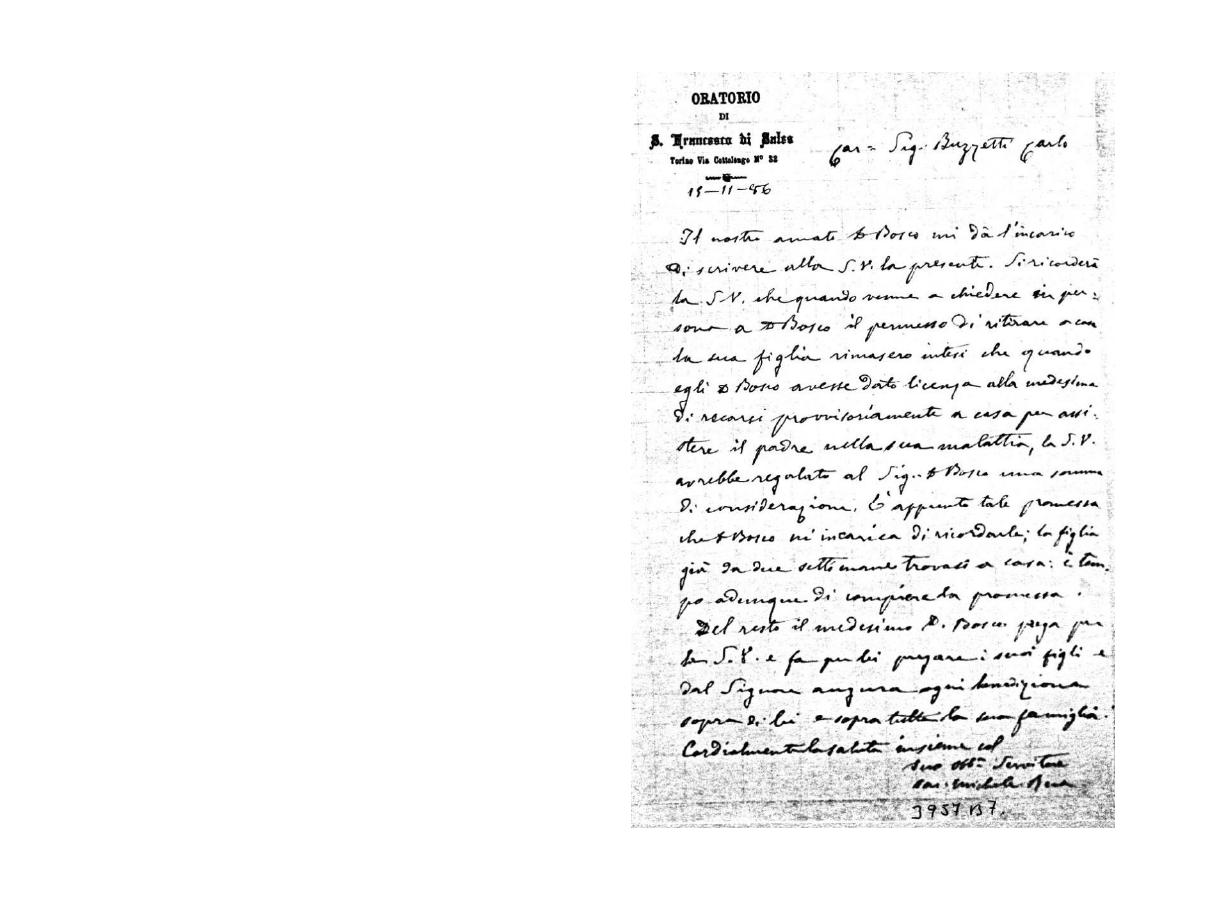 ORATORIO
DI
S. Francesco di Sales
Torino Via Cottolengo Nº 32
15-11-86
Car= Sig. Buzzetti Carlo
Il nostro amato D Bosco mi dà l'incarico
di scrivere alla S.V. la presente. Si ricorderà
la S.V. che quando venne a chiedere in per=
sona a D Bosco il permesso di ritirare a casa
la sua figlia rimasero intesi che quando
egli D Bosco avesse dato licenza alla medesima
di recarsi provvisoriamente a casa per assi-
stere il padre nella sua malattia, la S.V.
avrebbe regalato al Sig. D Bosco una somma
di considerazione. È appunto tale promessa
che D Bosco m'incarica di ricordarle; la figlia
già da due settimane trovasi a casa: è tem-
po adunque di compiere la promessa.
Del resto il medesimo D. Bosco prega per
la S.V. e fa per lei pregare i suoi figli e
dal Signore augura ogni benedizione
sopra di lei e sopra tutta la sua famiglia.
Cordialmente la saluta insieme col
suo Servitore
sac. Michele Rua
3957 B7.